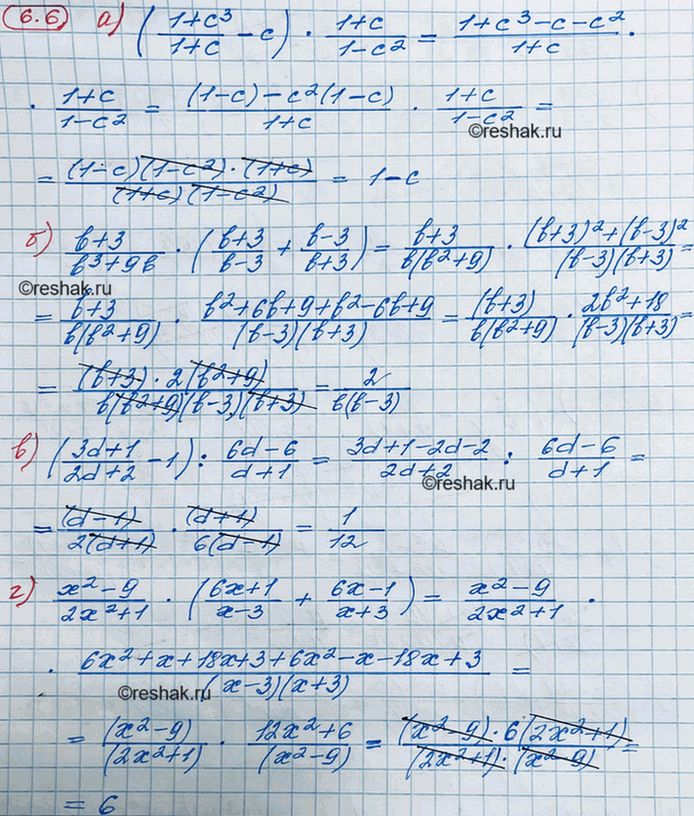 6.6 а) ((1+c³)/(1+c) − c) · (1+c)/(1−c²) = (1+c³−c−c²)/(1+c) ·
· (1+c)/(1−c²) = ((1−c)−c²(1−c))/(1+c) · (1+c)/(1−c²) =
©reshak.ru
= ((1−c)(1−c²)·(1+c))/((1+c)(1−c²)) = 1−c
б) (b+3)/(b³+9b) · ((b+3)/(b−3) + (b−3)/(b+3)) = (b+3)/(b(b²+9)) · ((b+3)²+(b−3)²)/((b−3)(b+3)) =
©reshak.ru
= (b+3)/(b(b²+9)) · (b²+6b+9+b²−6b+9)/((b−3)(b+3)) = (b+3)/(b(b²+9)) · (2b²+18)/((b−3)(b+3)) =
= ((b+3)·2(b²+9))/(b(b²+9)(b−3)(b+3)) = 2/(b(b−3))
в) ((3d+1)/(2d+2) − 1) : (6d−6)/(d+1) = (3d+1−2d−2)/(2d+2) : (6d−6)/(d+1) =
©reshak.ru
= (d−1)/(2(d+1)) · (d+1)/(6(d−1)) = 1/12
г) (x²−9)/(2x²+1) · ((6x+1)/(x−3) + (6x−1)/(x+3)) = (x²−9)/(2x²+1) ·
· (6x²+x+18x+3+6x²−x−18x+3)/((x−3)(x+3)) =
©reshak.ru
= (x²−9)/(2x²+1) · (12x²+6)/(x²−9) = ((x²−9)·6(2x²+1))/((2x²+1)·(x²−9)) =
= 6